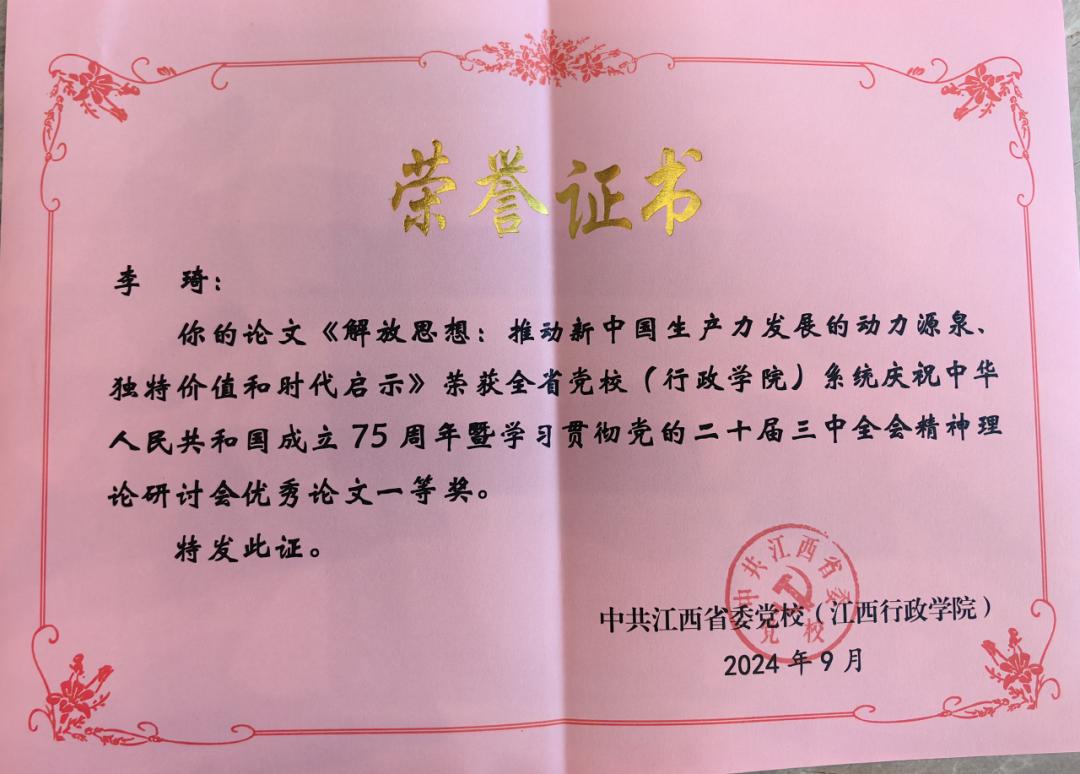 荣誉证书
李 琦：
你的论文《解放思想：推动新中国生产力发展的动力源泉、
独特价值和时代启示》荣获全省党校（行政学院）系统庆祝中华
人民共和国成立75周年暨学习贯彻党的二十届三中全会精神理
论研讨会优秀论文一等奖。
特发此证。
中共江西省委党校
中共江西省委党校（江西行政学院）
2024年9月